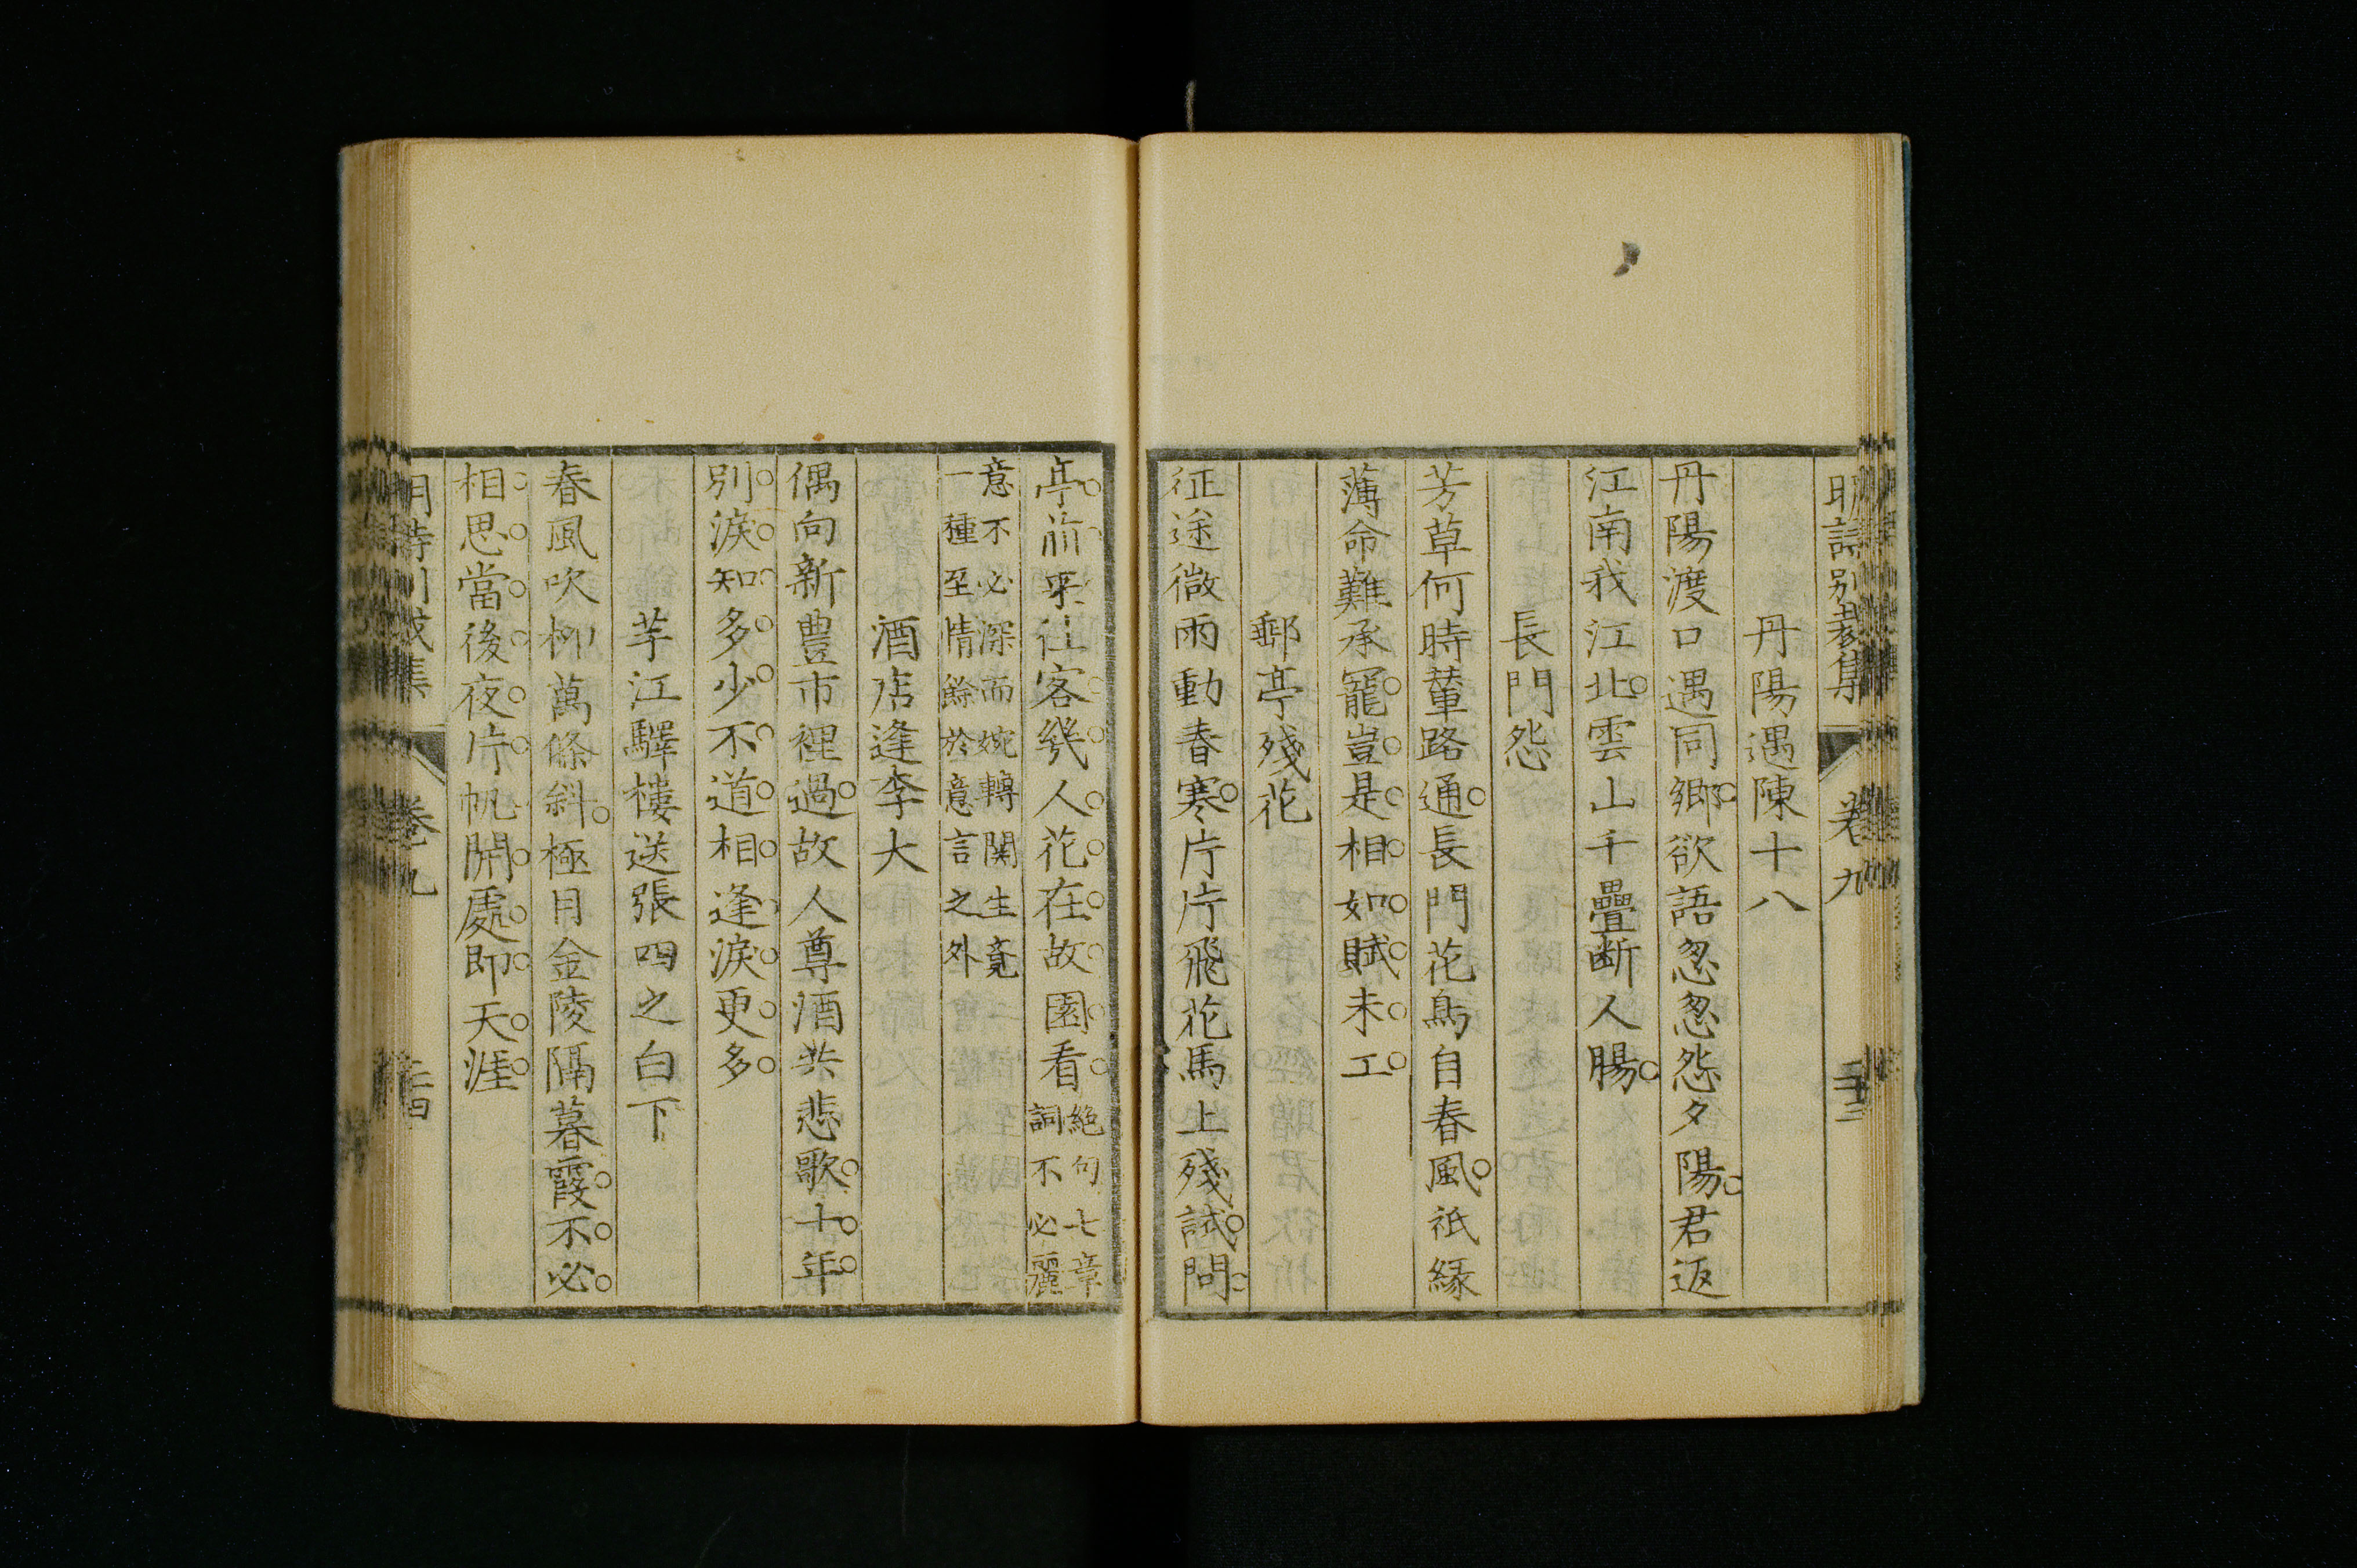 明詩別裁集 卷九 二十三
丹陽遇陳十八
丹陽渡口遇同鄉欲語怱怱怨夕陽君返
江南我江北雲山千疊断人腸
長門怨
芳草何時輦路通長門花鳥自春風祇緣
薄命難承寵豈是相如賦未工
郵亭殘花
征途微雨動春寒片片飛花馬上殘試問
亭前來往客幾人花在故園看
絕句七章
詞不必麗
意不必深而婉轉關生竟
一種至情餘於意言之外
酒店逢李大
偶向新豊市裡過故人尊酒共悲歌十年
別淚知多少不道相逢淚更多
芋江驛樓送張四之白下
春風吹柳萬條斜極目金陵隔暮霞不必
相思當後夜片帆開處即天涯
明詩別裁集 卷九 二十四